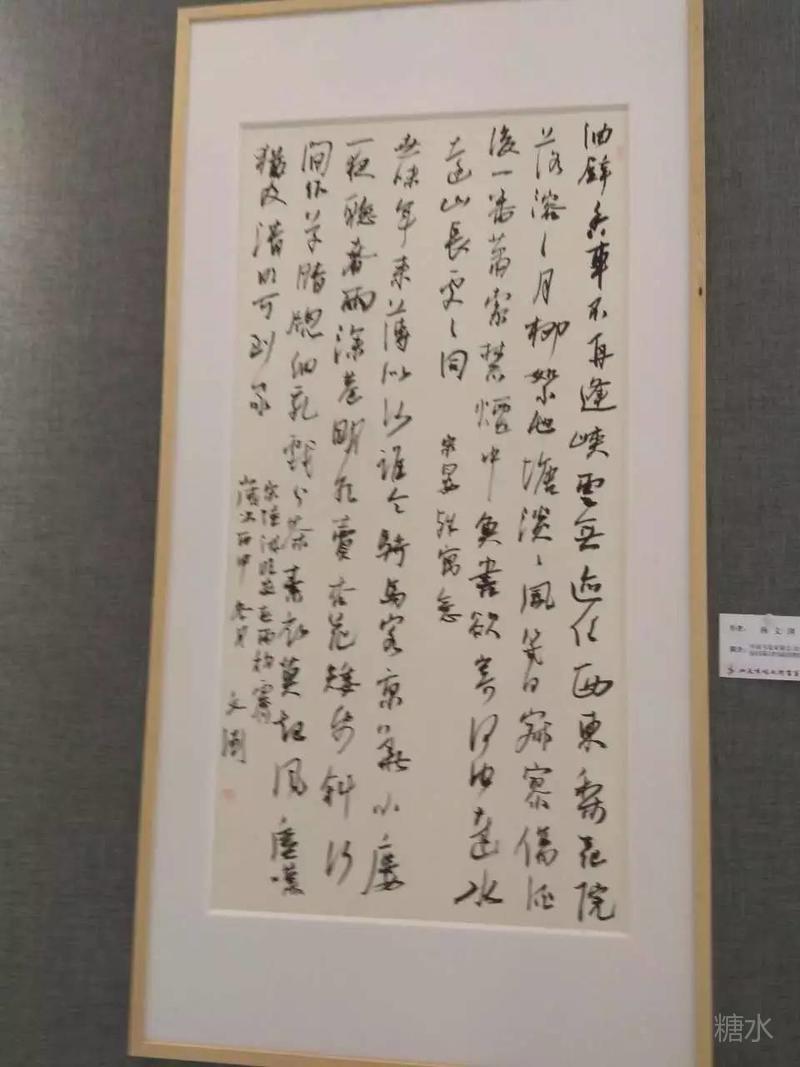 油壁香車不再逢峽雲無迹任西東梨花院
落溶々月柳絮池塘淡々風幾日寂寞傷酒
後一番蕭索禁煙中魚書欲寄何由達水
遠山長處々同 宋晏殊寓意
世味年來薄似紗誰令騎馬客京華小樓
一夜聽春雨深巷明朝賣杏花矮紙斜行
閒作草晴窗細乳戲分茶素衣莫起風塵嘆
猶及清明可到家
宋陸游臨安春雨初霽
歲次丙申冬月 文
作者: 文
糖水